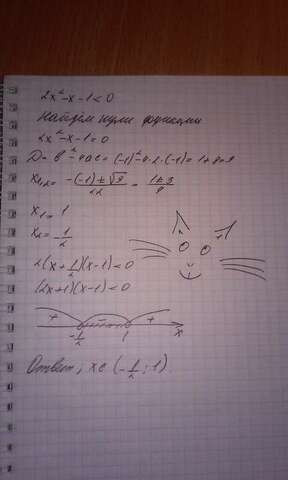 2x²-x-1<0
Найдём нули функции
2x²-x-1=0
D=b²-4ac=(-1)²-4·2·(-1)=1+8=9
x₁,₂=(-(-1)±√9)/(2·2)=(1±3)/4
x₁=1
x₂=-1/2
2(x+1/2)(x-1)<0
(2x+1)(x-1)<0
+ - +
-1/2 1 x
Ответ: x∈(-1/2;1).